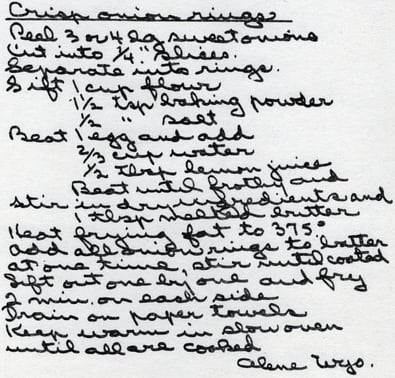 Crisp onion rings
Peel 3 or 4 lg sweet onions
Cut into 1/4" slices.
Separate into rings.
Sift 1 cup flour
1 1/2 tsp baking powder
1/2 " salt
Beat 1 egg and add
2/3 cup water
1/2 tbsp lemon juice
Beat until frothy and
stir in dry ingredients and
1 tbsp melted butter
Heat frying fat to 375°
add all onion rings to batter
at one time, stir until coated
Lift out one by one and fry
2 min. on each side
Drain on paper towels
Keep warm in slow oven
until all are cooked
Alene Wyo.